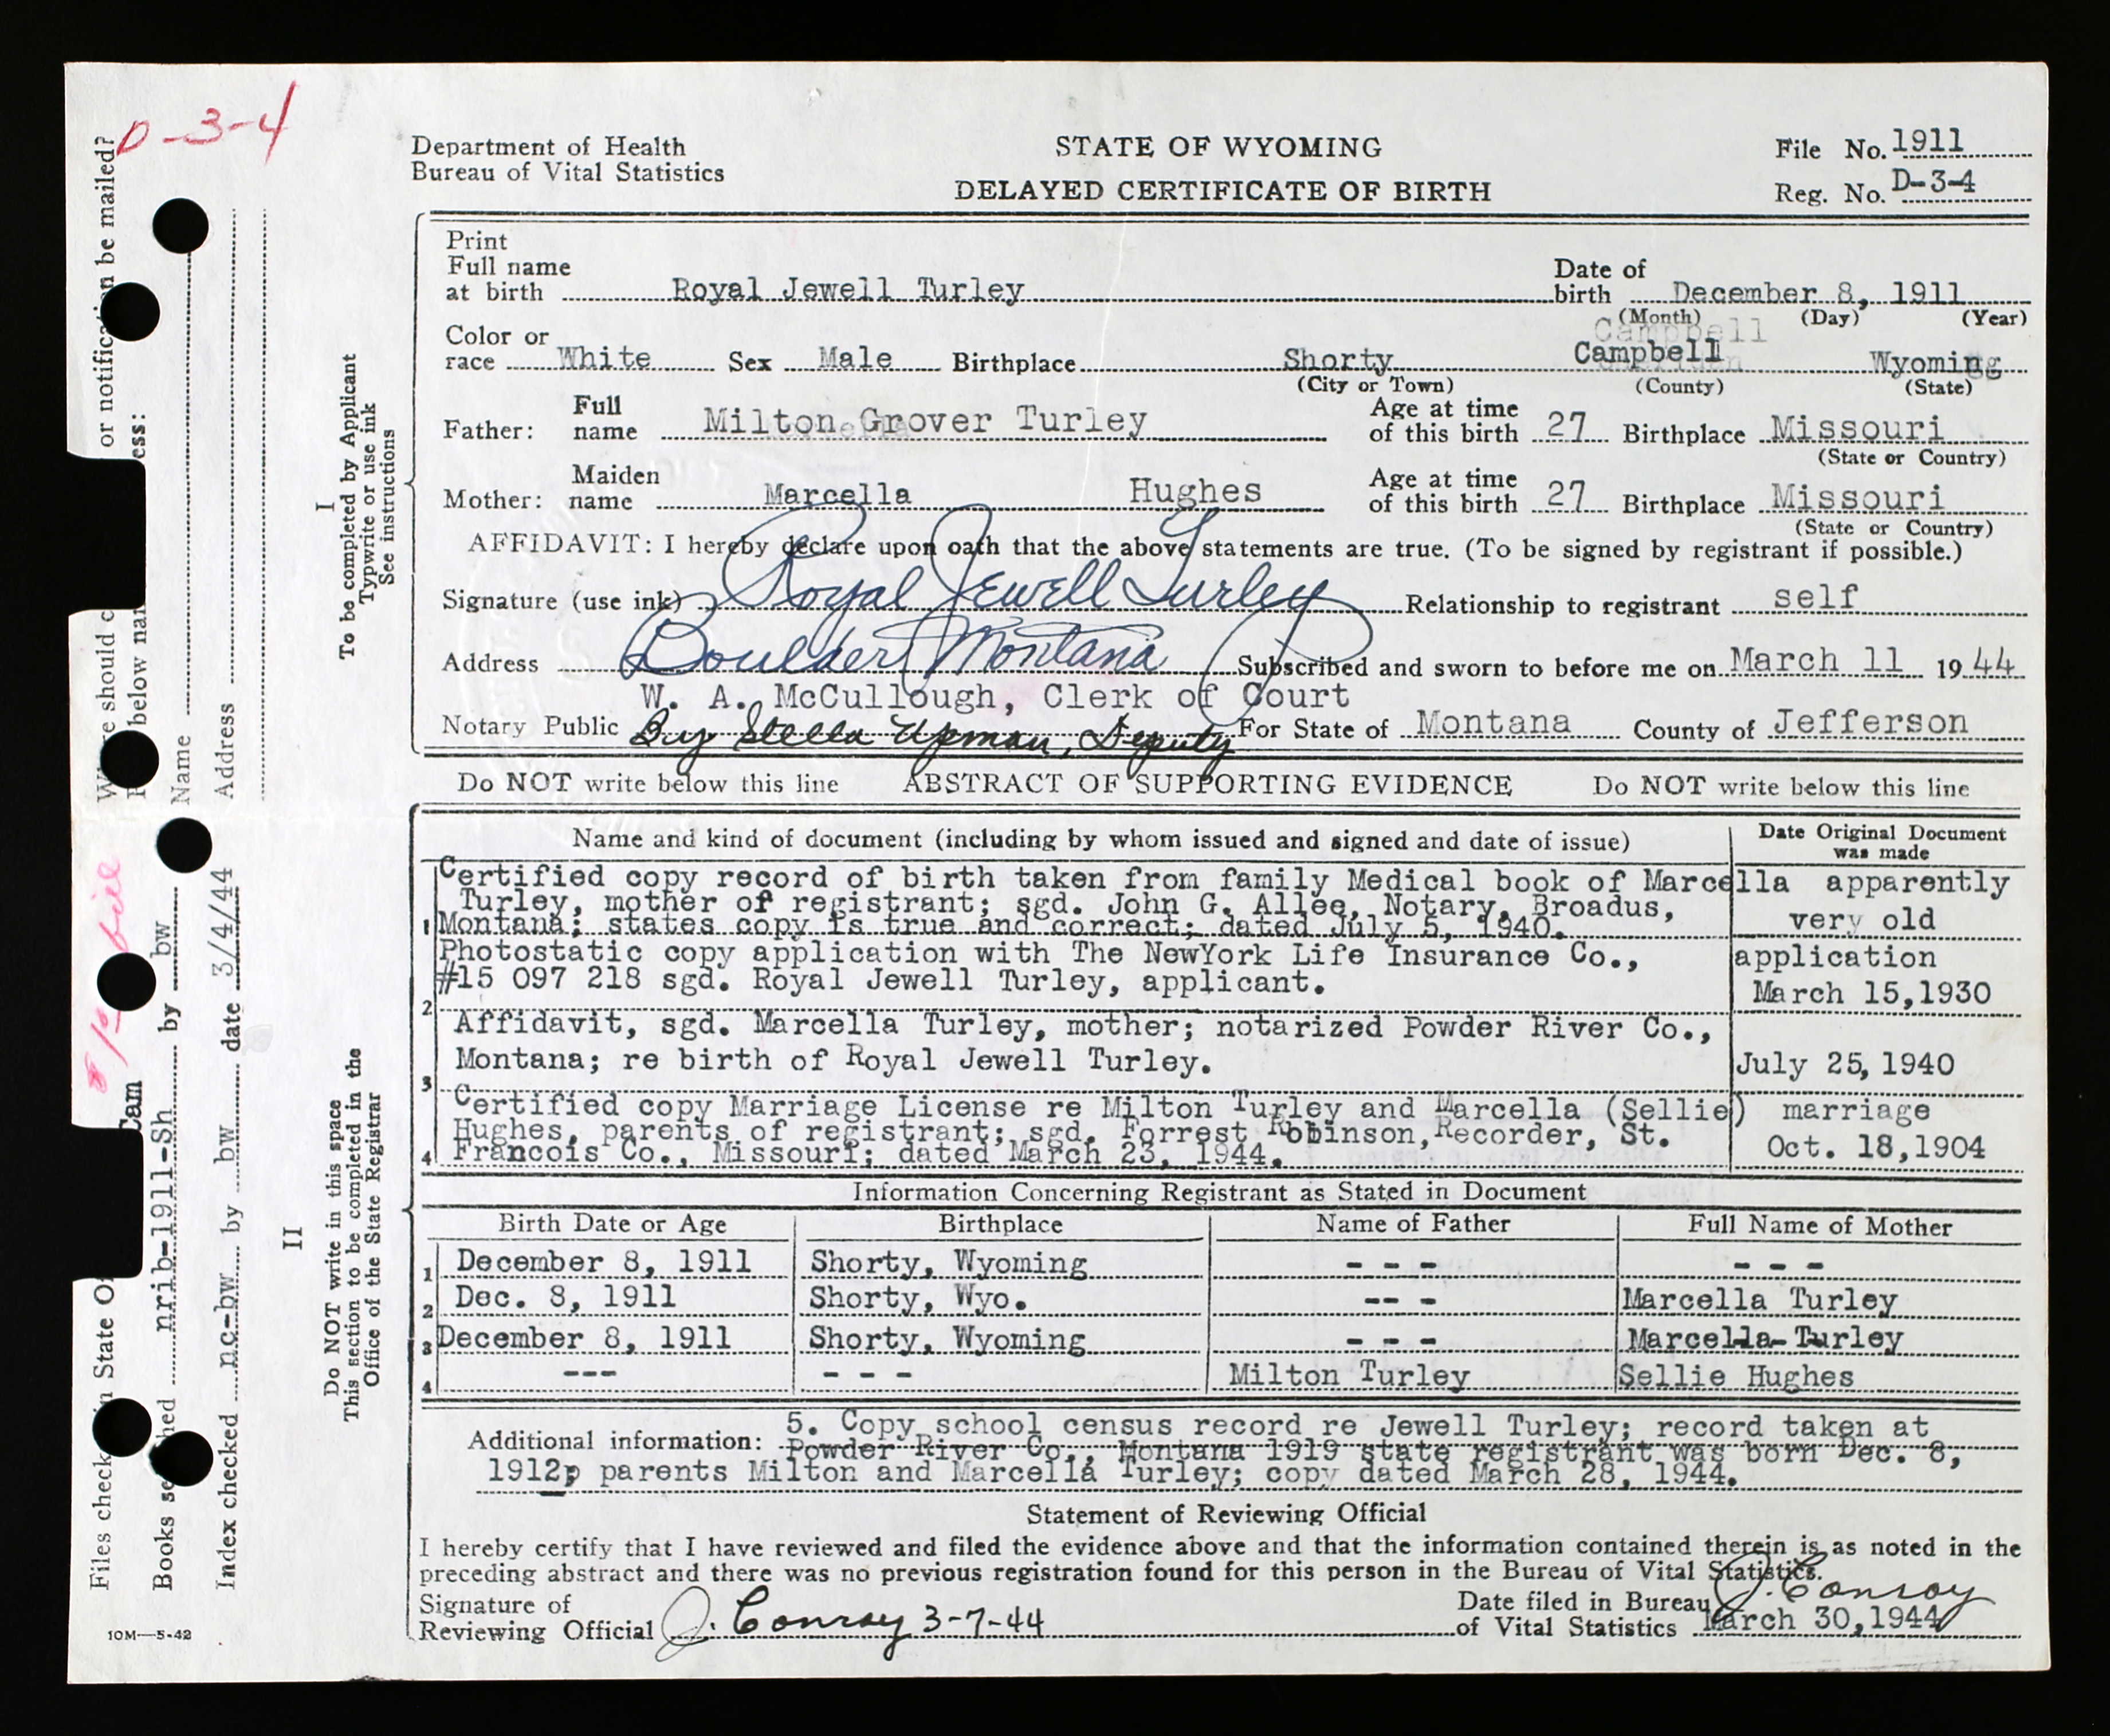 D-3-4
Department of Health
Bureau of Vital Statistics
STATE OF WYOMING
DELAYED CERTIFICATE OF BIRTH
File No. 1911
Reg. No. D-3-4
Print
Full name
at birth Royal Jewell Turley
Date of
birth December 8, 1911
(Month) (Day) (Year)
Campbell
Color or
race White Sex Male Birthplace Shorty Campbell Wyoming
(City or Town) (County) (State)
Father: Full name Milton Grover Turley Age at time of this birth 27 Birthplace Missouri
(State or Country)
Mother: Maiden name Marcella Hughes Age at time of this birth 27 Birthplace Missouri
(State or Country)
AFFIDAVIT: I hereby declare upon oath that the above statements are true. (To be signed by registrant if possible.)
Signature (use ink) Royal Jewell Turley Relationship to registrant self
Address Boulder Montana Subscribed and sworn to before me on March 11 1944
W. A. McCullough, Clerk of Court
Notary Public By Stella Upman, Deputy For State of Montana County of Jefferson
I
To be completed by Applicant
Typwrite or use ink
See instructions
Do NOT write below this line ABSTRACT OF SUPPORTING EVIDENCE Do NOT write below this line
Name and kind of document (including by whom issued and signed and date of issue)
Date Original Document
was made
Certified copy record of birth taken from family Medical book of Marcella apparently
Turley, mother of registrant; sgd. John G. Allee, Notary, Broadus, very old
1 Montana; states copy is true and correct; dated July 5, 1940.
Photostatic copy application with The NewYork Life Insurance Co., application
#15 097 218 sgd. Royal Jewell Turley, applicant. March 15,1930
2
Affidavit, sgd. Marcella Turley, mother; notarized Powder River Co.,
Montana; re birth of Royal Jewell Turley. July 25, 1940
3
Certified copy Marriage License re Milton Turley and Marcella (Sellie) marriage
Hughes, parents of registrant; sgd. Forrest Robinson, Recorder, St. Oct. 18,1904
4 Francois Co., Missouri; dated March 23, 1944.
Information Concerning Registrant as Stated in Document
Birth Date or Age Birthplace Name of Father Full Name of Mother
1 December 8, 1911 Shorty, Wyoming - - - - - -
2 Dec. 8, 1911 Shorty, Wyo. -- - Marcella Turley
3 December 8, 1911 Shorty, Wyoming - - - Marcella Turley
4 --- - - - Milton Turley Sellie Hughes
Additional information: 5. Copy school census record re Jewell Turley; record taken at
Powder River Co., Montana 1919 state registrant was born Dec. 8,
1912; parents Milton and Marcella Turley; copy dated March 28, 1944.
Statement of Reviewing Official
I hereby certify that I have reviewed and filed the evidence above and that the information contained therein is as noted in the
preceding abstract and there was no previous registration found for this person in the Bureau of Vital Statistics.
J. Conroy
Signature of
Reviewing Official J. Conroy 3-7-44
Date filed in Bureau
of Vital Statistics March 30,1944
II
Do NOT write in this space
This section to be completed in the
Office of the State Registrar
or notification be mailed?
should
below
Name
Address
Cam
Files checked in State
Books searched nrib-1911-Sh by bw
Index checked nc-bw by bw date 3/4/44
10M—5-42